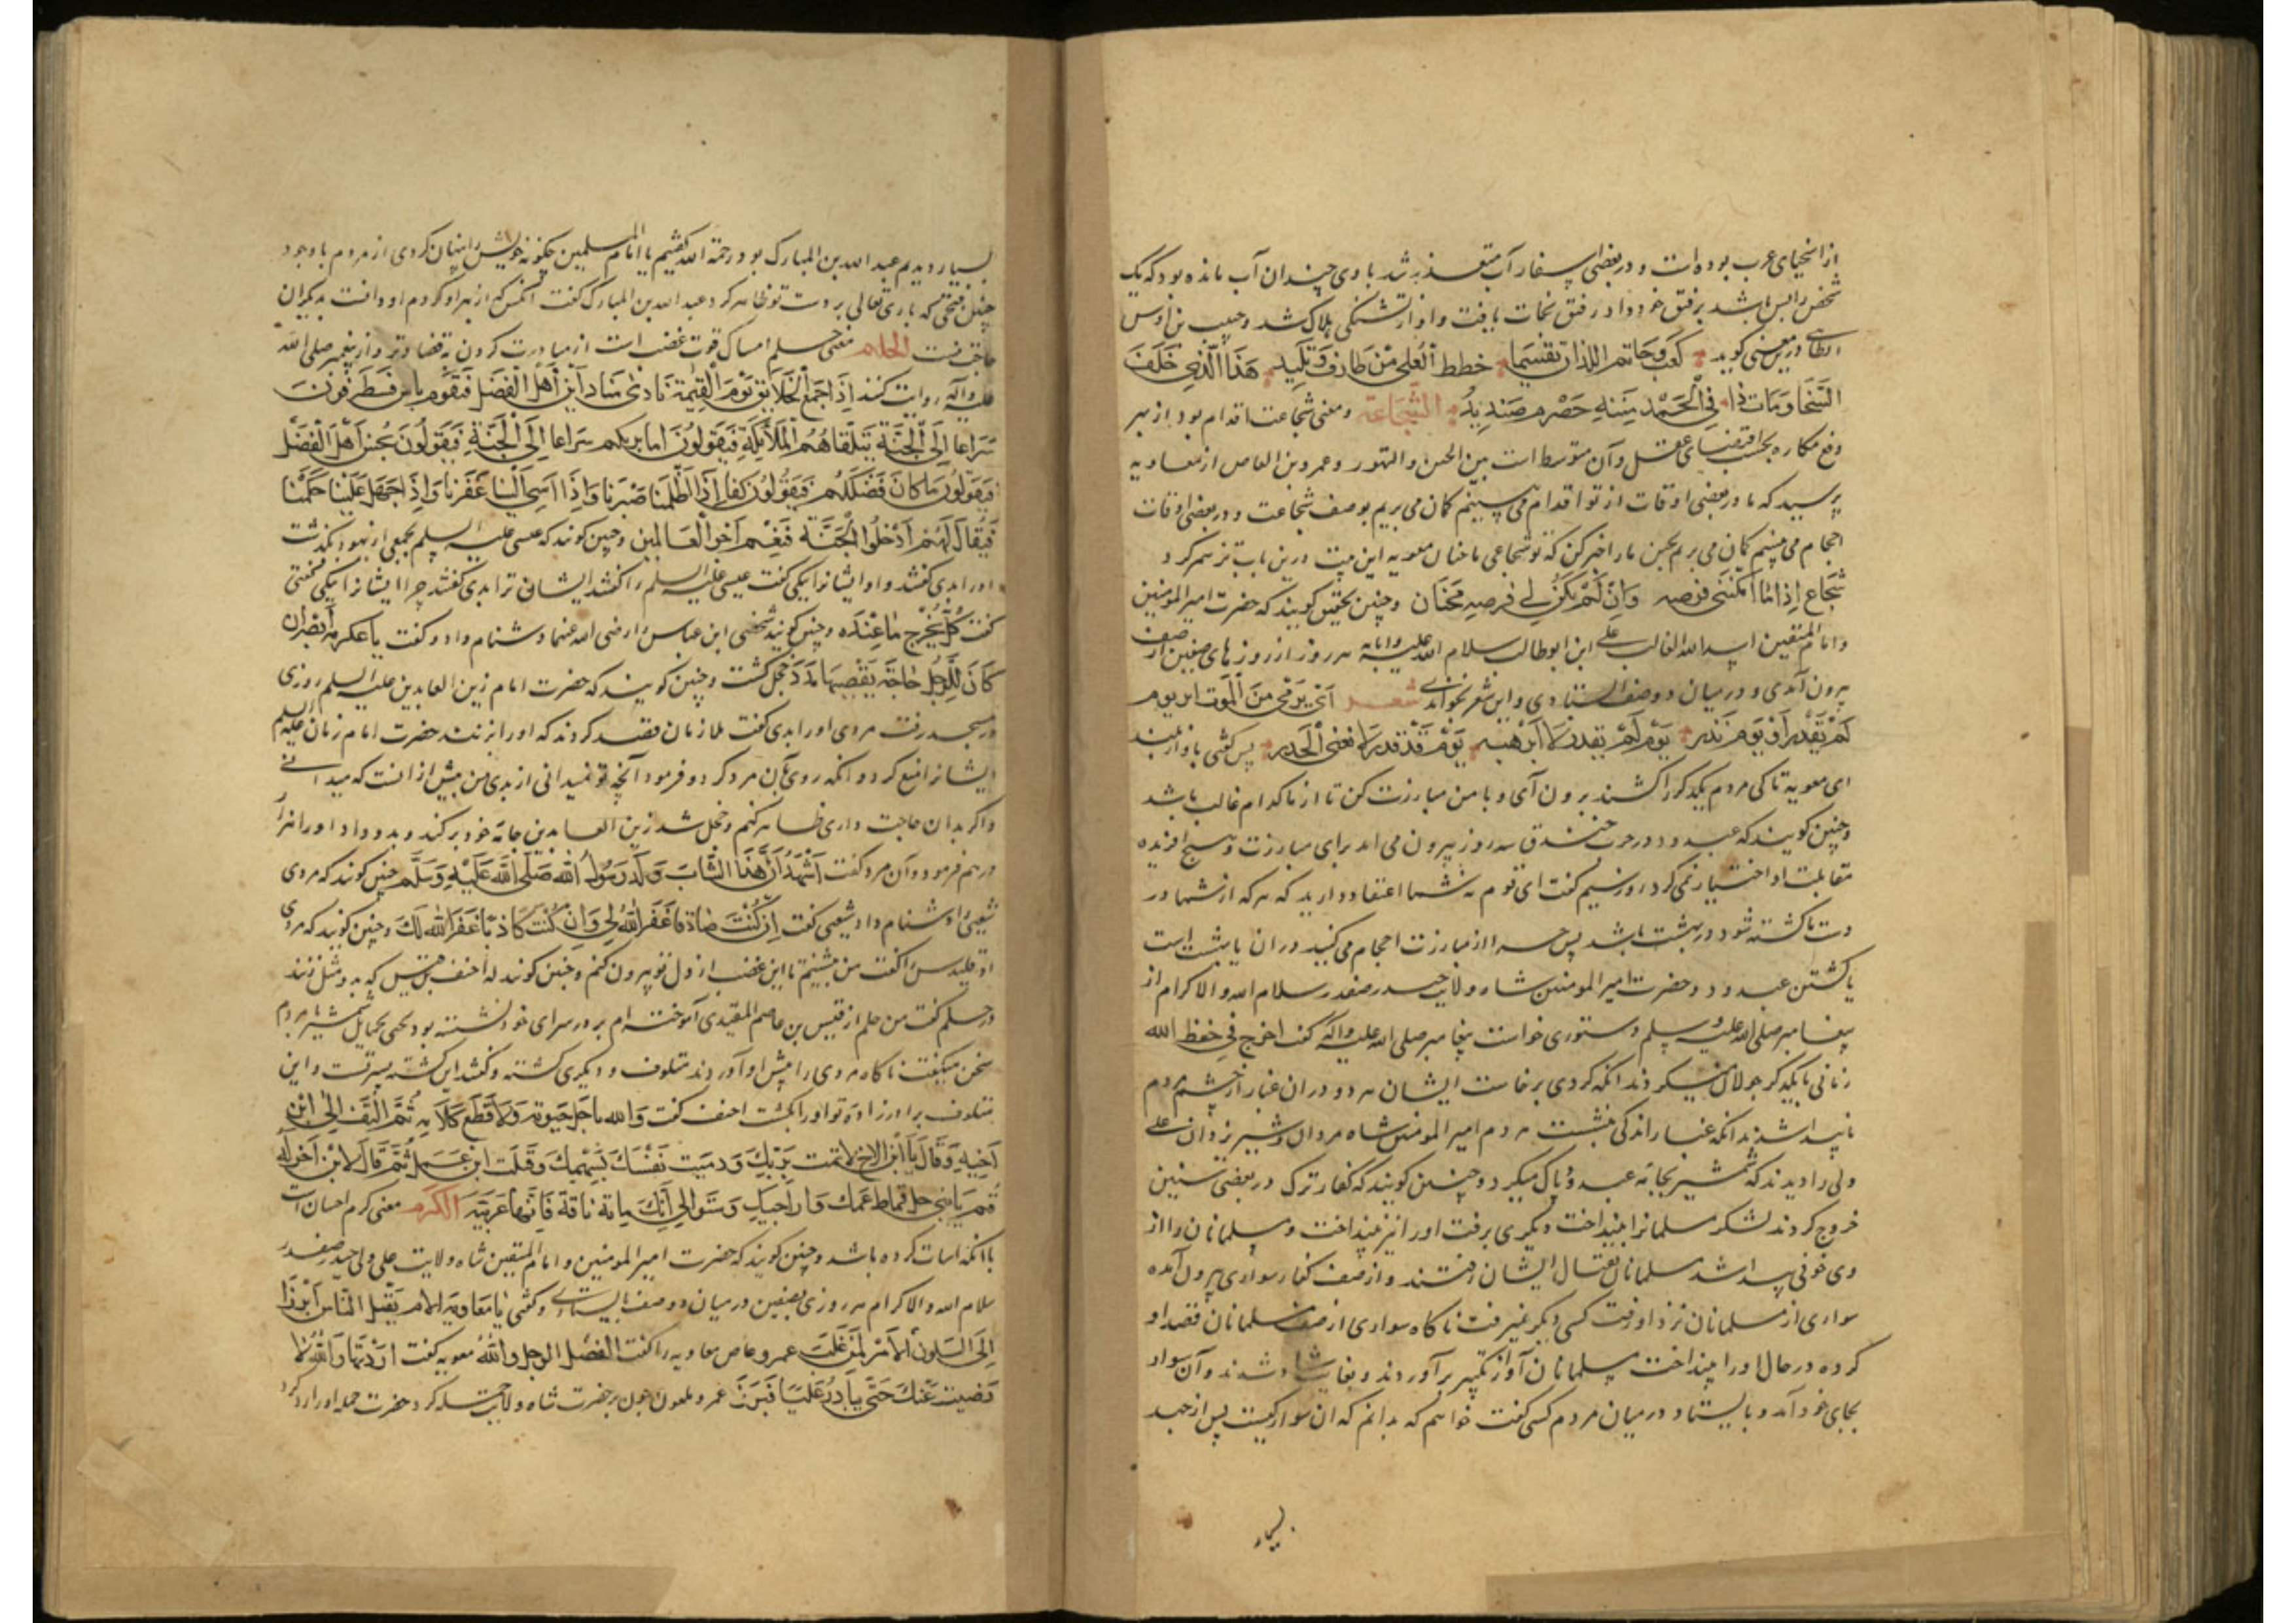 از اسخیای عرب بوده است و در بعضی اسفار آب متعذر شد با وی چندان آب مانده بود که یک
شخص را بس باشد برفق خود داد رفیق نجات یافت و او از تشنگی هلاک شد و حبیب بن اوس
الطایی درین معنی کوید کعب و حاتم اللذان تقسما خطط العلی من طارف و تلید هذا الذی خلف
السخا و مات ذا فی الحمد میتة خضرم صندید الشجاعة و معنی شجاعت اقدام بود از بهر
دفع مکاره بحسب اقتضای عقل و آن متوسط است بین الجبن و التهور و عمرو بن العاص از معاویه
پرسید که ما در بعضی اوقات از تو اقدام می بینیم کمان می بریم بوصف شجاعت و در بعضی اوقات
احجام می بینیم کمان می بریم بجبن ما را خبر کن که تو شجاعی یا جبان معویه این بیت درین باب ترنم کرد
شجاع اذا ما امکنتنی فرصه و ان لم تکن لی فرصه فجبان و چنین تحقیق کویند که حضرت امیر المومنین
و امام المتقین اسد الله الغالب علی ابن ابوطالب سلام الله علیه و ابائه هر روز از روز های صفین از صف
بیرون آمدی و در میان دو صف استادی و این شعر بخواندی شعر ای یومی من الموت افر یوم
لم یقدر او یوم قدر یوم لم یقدر لا ارهبه یوم قد قدر لا یغنی الحذر پس کفتی باواز بلند
ای معویه تا کی مردم یکدکر را کشند برون آی و با من مبارزت کن تا از ما کدام غالب باشد
و چنین کویند که عبدود در حرب خندق سه روز بیرون می امد برای مبارزت و هیچ افریده
مقابلت او اختیار نمی کرد روز سیم کفت ای قوم نه شما اعتقاد دارید که هر که از شما در
دست ما کشته شود در بهشت باشد پس چرا از مبارزت احجام می کنید در ان یا بهشت است
یا کشتن عبدود و حضرت امیر المومنین شاه ولایت حیدر صفدر سلام الله و الاکرام از
پیغامبر صلی الله علیه وسلم دستوری خواست پیغامبر صلی الله علیه و آله کفت اخرج فی حفظ الله
زمانی با یکدکر جولان میکردند انکه کردی برخاست ایشان هر دو در ان غبار از چشم مردم
ناپیدا شدند انکه غبار اندکی بنشست مردم امیر المومنین شاه مردان و شیر یزدان علی
ولی را دیدند که شمشیر بجامه عبدود پاک میکرد و چنین کویند که کفار ترک در بعضی سنین
خروج کردند لشکر مسلمانرا بینداخت دیکری برفت اورا نیز بینداخت و مسلمانان را از
وی خوفی پیدا شد مسلمانان بقتال ایشان رفتند و از صف کفار سواری بیرون آمده
سواری از مسلمانان نزد او رفت کسی دیکر نمیرفت ناکاه سواری از صف مسلمانان قصد او
کرده در حال اورا بینداخت مسلمانان آواز تکبیر برآوردند و بغایت شاد شدند و آن سوار
بجای خود آمد و بایستاد در میان مردم کسی کفت خواهم که بدانم که ان سوار کیست پس از جهد
بسیار
بسیار دیدم عبد الله بن المبارک بود رحمة الله کفتیم یا امام المسلمین چکونه خویش را پنهان کردی از مردم با وجود
چنین فتحی که باری تعالی بر دست تو ظاهر کرد عبد الله بن المبارک کفت آنکس که از بهر او کردم او دانست بدیکران
حاجت نیست الحلم معنی حلم امساک قوت غضب است از مبادرت کردن به قضا وتر و از پیغمبر صلی الله
علیه و آله روایت کنند اذا جمع الخلایق یوم القیمة نادی مناد این اهل الفضل فیقوم ناس فینطرقون
سراعا الی الجنة تتلقاهم الملائکة فیقولون انا نریکم سراعا الی الجنة فیقولون نحن اهل الفضل
فیقولون ما کان فضلکم فیقولون کنا اذا ظلمنا صبرنا و اذا اسی الینا غفرنا و اذا جهل علینا حلمنا
فیقال لهم ادخلوا الجنة فنعم اجر العالمین و چنین کویند که عیسی علیه السلم بجمعی از یهود بکذشت
اورا بدی کفتند و او ایشانرا نیکی کفت عیسی علیه السلم را کفتند ایشان ترا بدی کفتند چرا ایشانرا نیکی کفتی
کفت کل یخرج ما عنده و چنین کویند شخصی ابن عباس را رضی الله عنهما دشنام داد و کفت یا عکرمه انظر ان
کان للرجل حاجة یقضیها مرد خجل کشت و چنین کویند که حضرت امام زین العابدین علیه السلم روزی
در مسجد رفت مردی اورا بدی کفت ملازمان قصد کردند که اورا بزنند حضرت امام زمان علیه السلم
ایشانرا منع کرد و انکه روی بآن مرد کرد و فرمود آنچه تو نمیدانی از بدی من بیش از انست که میدانی
و اکر بدان حاجت داری ظاهر کنم و خجل شد زین العابدین جامه خود برکند و بدو داد و اورا هزار
درهم فرمود و آن مرد کفت اشهد ان هذا الشاب ولد رسول الله صلی الله علیه وسلم چنین کویند که مردی
شعبی را دشنام داد شعبی کفت ان کنت صادقا غفر الله لی و ان کنت کاذبا غفر الله لک و چنین کویند که مردی
اوقلیدس را کفت من ننشینم تا این غضب از دل تو بیرون کنم و چنین کویند که احنف بن قیس که بدو مثل زنند
در حلم کفت من حلم از قیس بن عاصم المقیدی آموخته ام بر در سرای خود نشسته بود محتبی بحمایل شمشیر با مردم
سخن میکفت ناکاه مردی را پیش او آوردند مکتوف و دیکری کشته و کفتند این کشته پسر تست و این
مکتوف برادر زاده تو اورا بکشت احنف کفت والله ما حل حبوته ولا قطع کلامه ثم التفت الی ابن
اخیه وقال یا ابن الاخ اثمت بربک ورمیت نفسک بسهمک وقتلت ابن عمک ثم قال لابن آخر له
قم یا بنی حل قماط عمک و وار اخیک وسق الی امک مایة ناقة فانها غریبة الکرم معنی کرم احسان است
با انکه اساءت کرده باشد و چنین کویند که حضرت امیر المومنین و امام المتقین شاه ولایت علی ولی حیدر صفدر
سلام الله و الاکرام هر روزی بصفین در میان دو صف بایستادی و کفتی یا معاویه الام یقتل الناس ابرز
الی لیکون الامر لمن غلب عمرو عاص معاویه را کفت انصفک الرجل والله معویه کفت اردتها والله لا
رضیت عنک حتی تبادر علیا فبرز عمرو ملعون چون بر حضرت شاه ولایت حمله کرد حضرت حمله اورا رد کرد